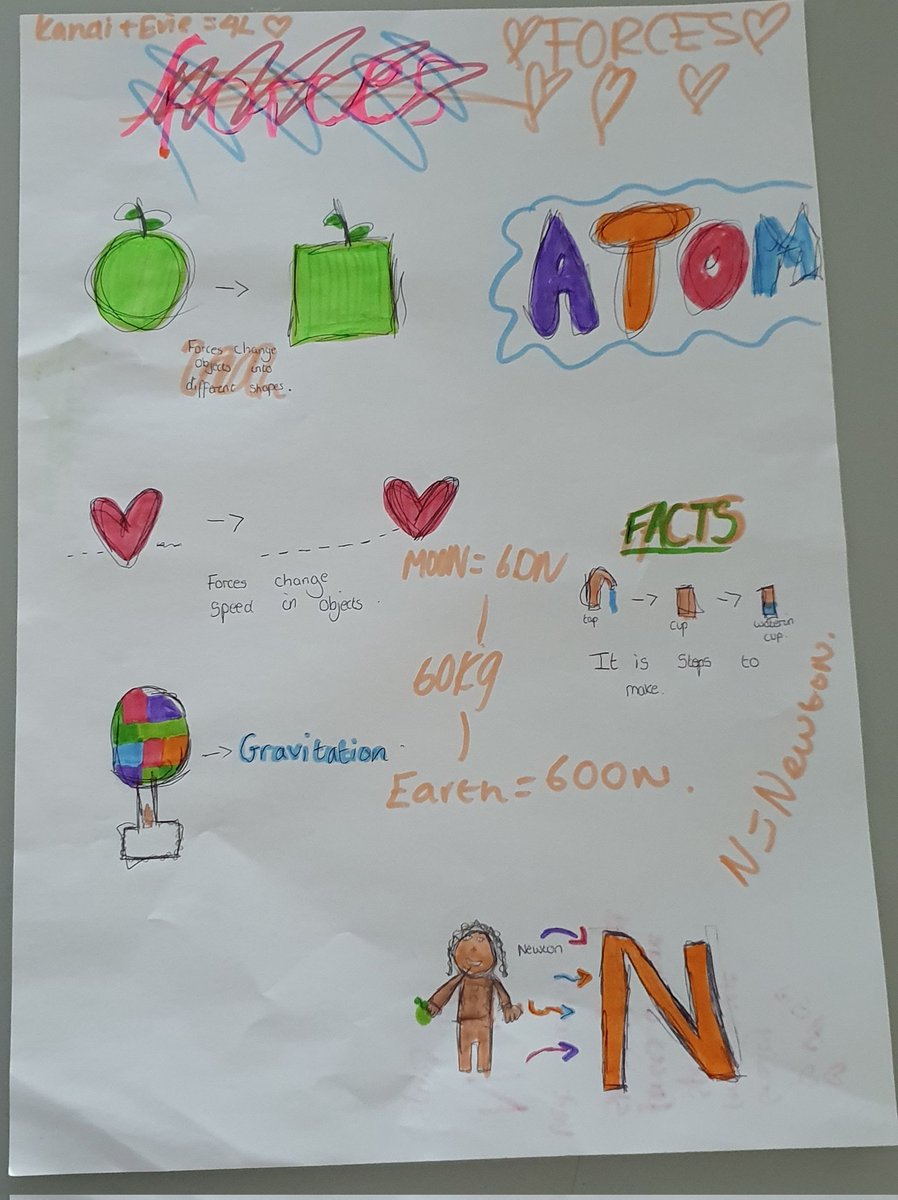 Kanai + Evie = 4L
FORCES
forces
ATOM
Forces change
Objects into
different shapes.
Forces change
Speed in Objects.
FACTS
tap
cup
water in
cup.
It is Steps to
make.
MOON = 60N
60Kg
Earth = 600N.
Gravitation
N = Newton.
Newton
N